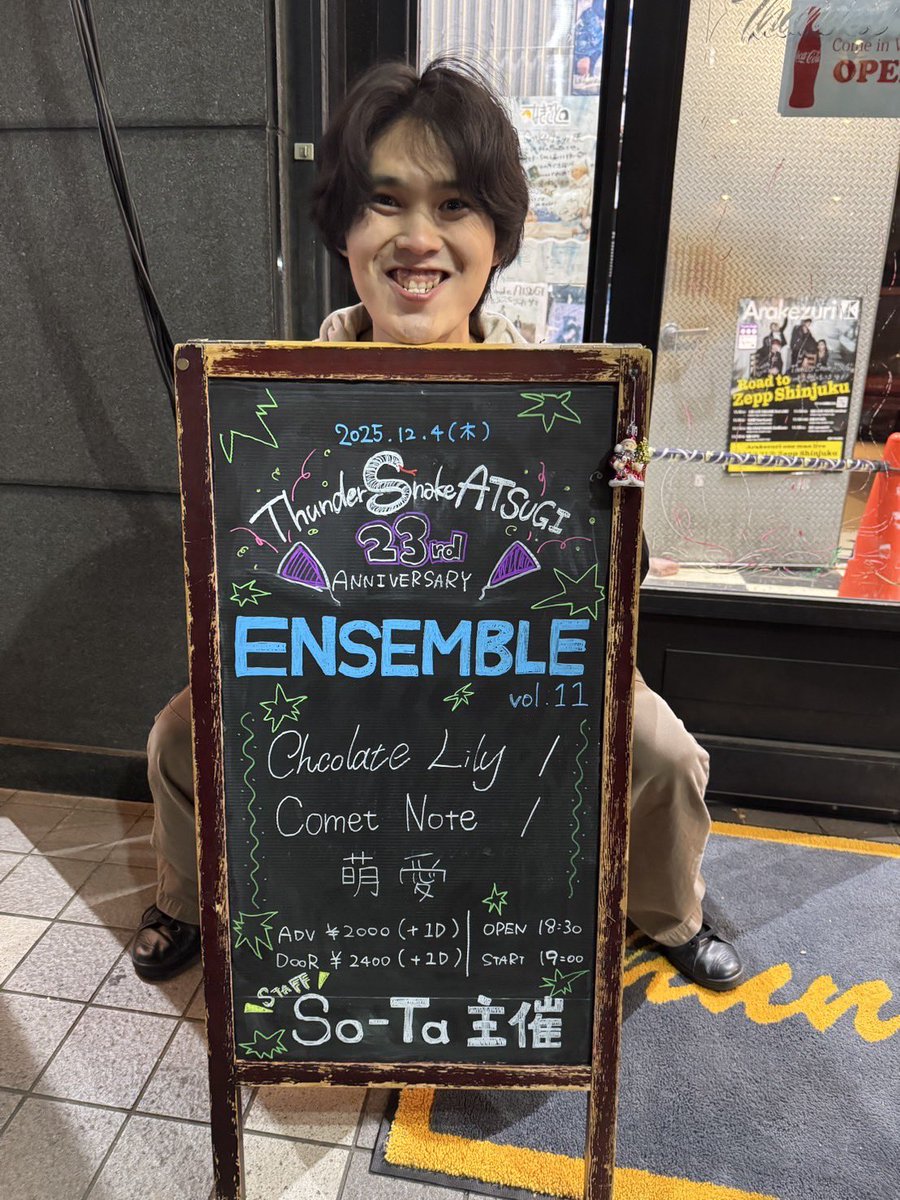 Come in W
OPE
Coca-Cola
Arakezuri
Road to
Zepp Shinjuku
Arakezuri one man live
2025.12.4(木)
ThunderSnakeATSUGI
23rd
ANNIVERSARY
ENSEMBLE
vol.11
Chcolate Lily /
Comet Note /
萌愛
ADV ¥2000 (+1D) OPEN 18:30
DOOR ¥2400 (+1D) START 19:00
STAFF
So-Ta 主催